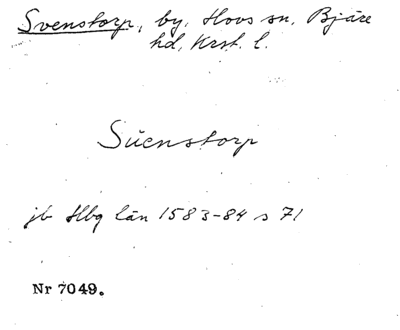 Svenstorp, by, Hovs sn, Bjäre
hd, Krst. l.
Suenstorp
jb Hbg län 1583-84 s 71
Nr 7049.